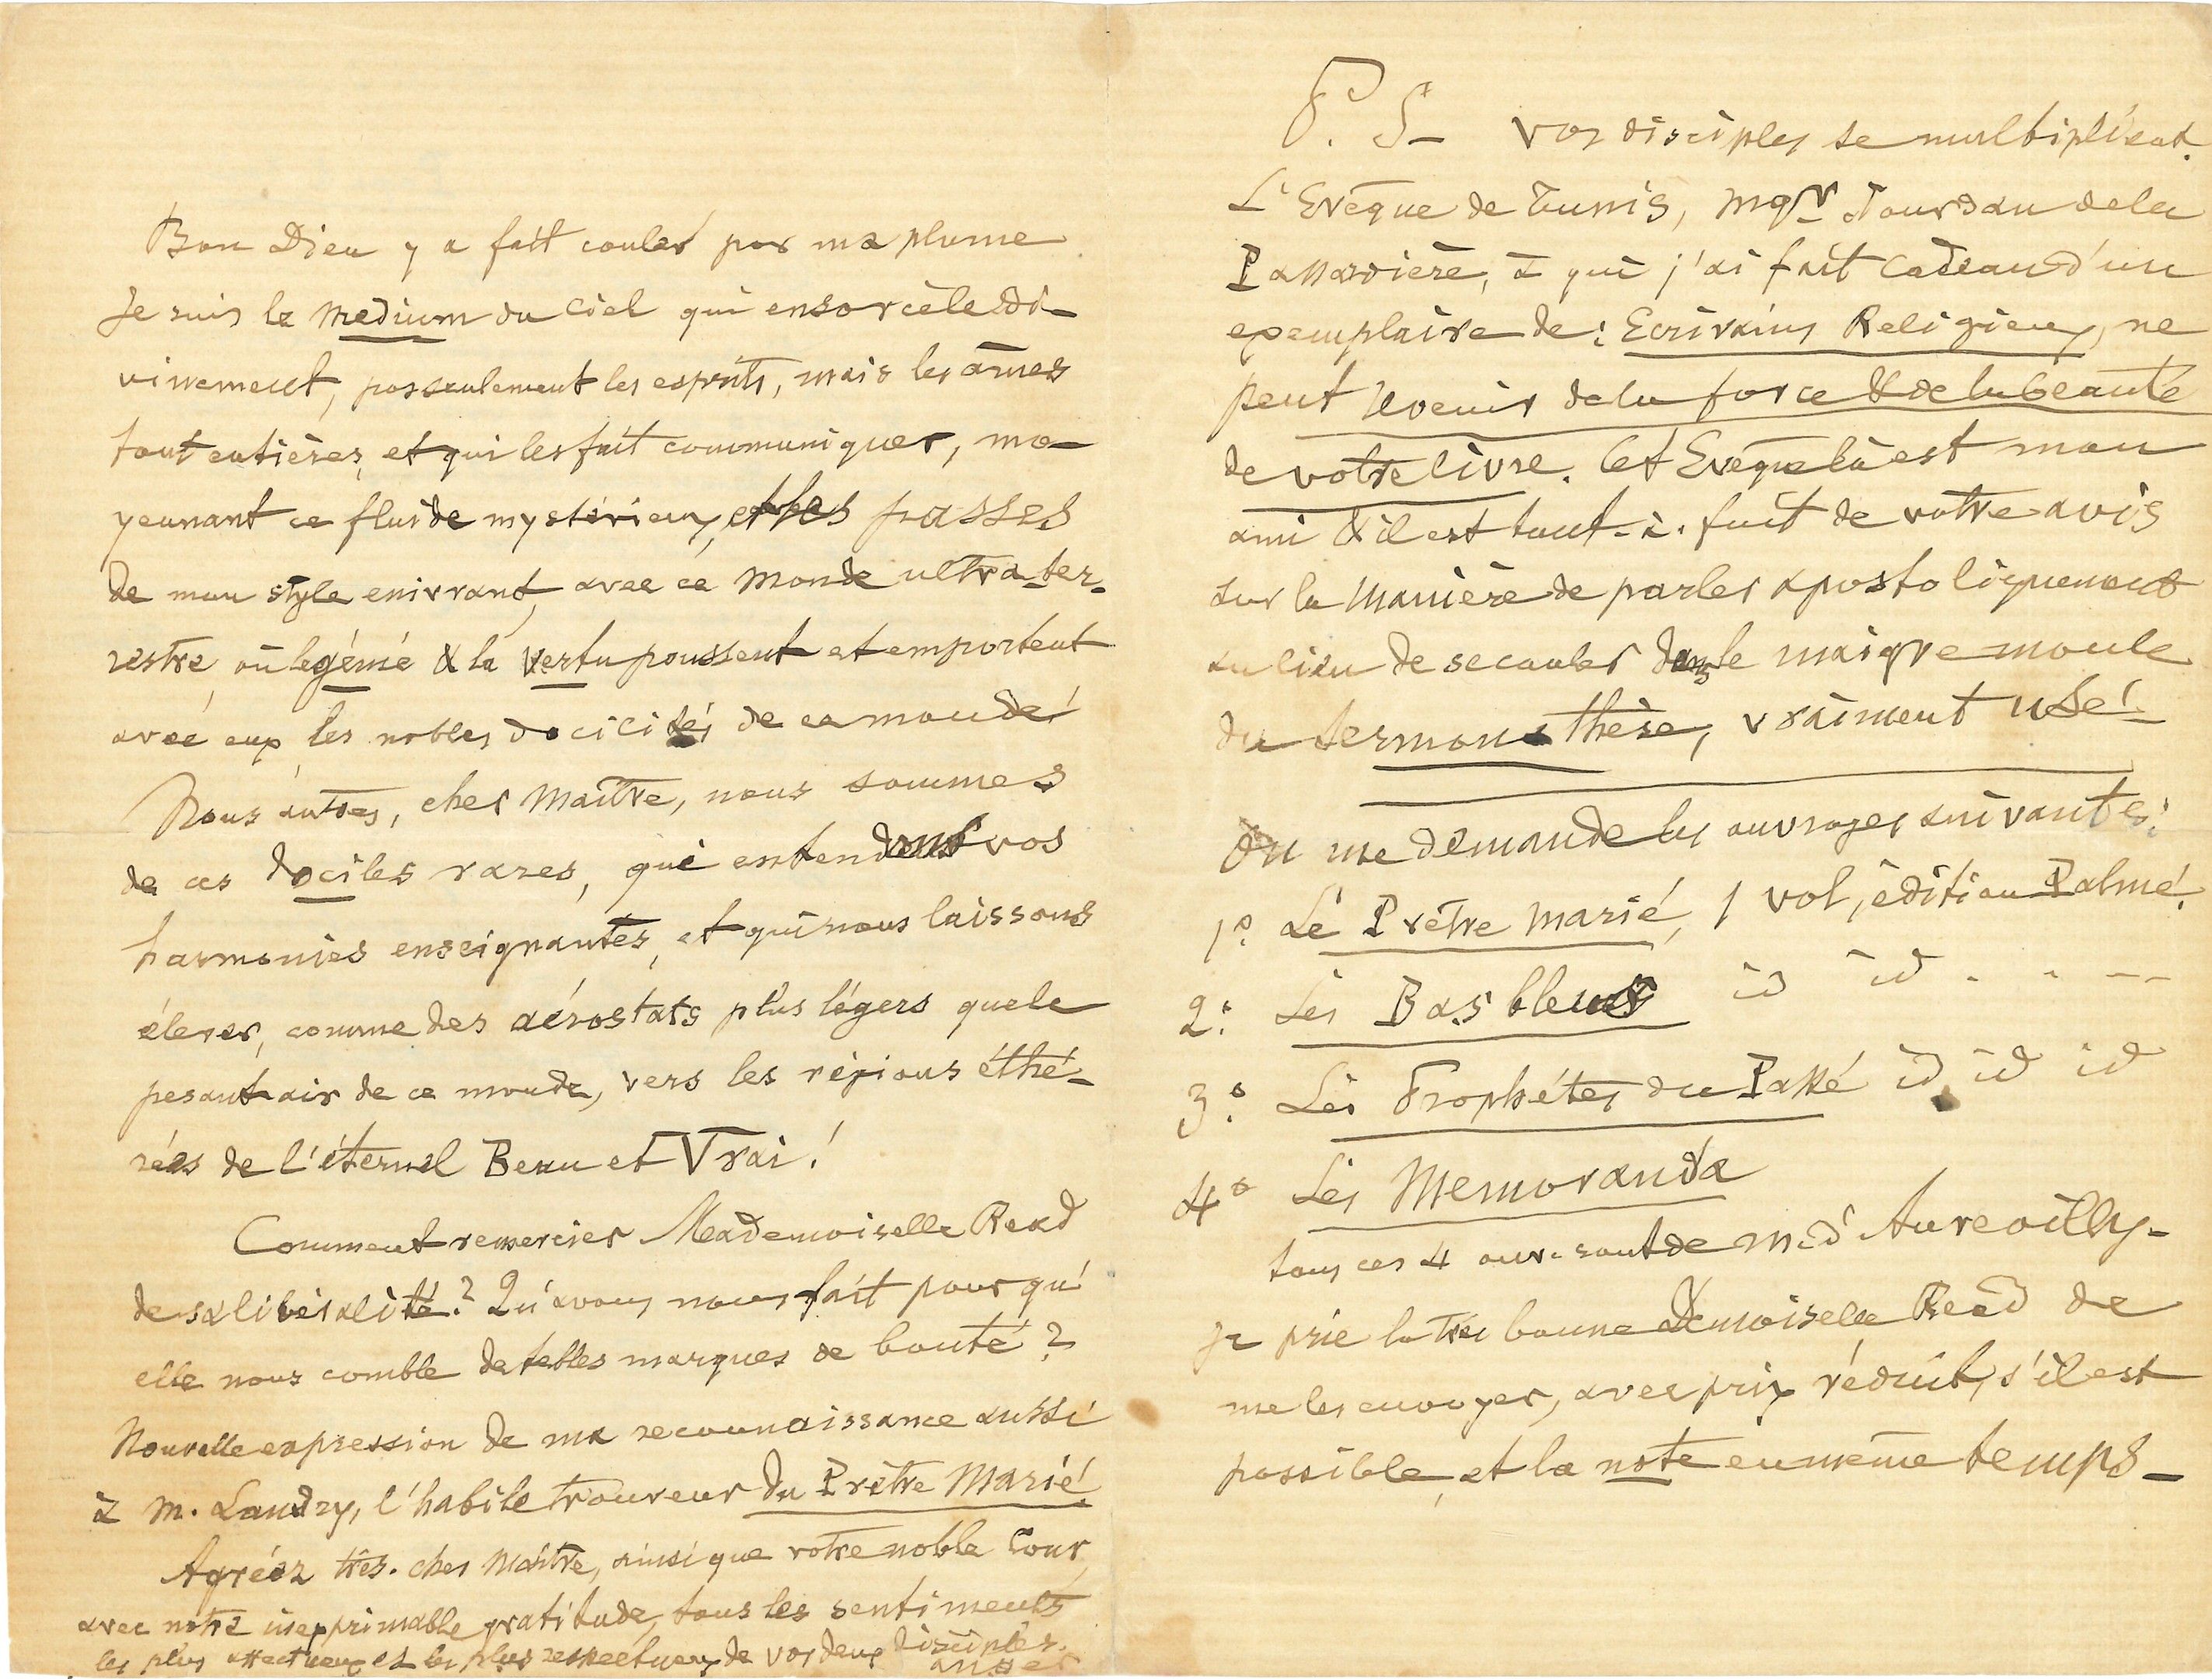 Bon Dieu y a fait couler par ma plume.
Je suis le medium du Ciel qui ensorcèle di-
vinement, pas seulement les esprits, mais les âmes
tout entières, et qui les fait communiquer, mo-
yennant ce fluide mystérieux, et les passes
de mon style enivrant, avec ce monde ultra-ter-
restre où le génie & la vertu poussent et emportent
avec eux les nobles docilités de ce monde!
Nous autres, cher Maître, nous sommes
de ces dociles rares, qui entendent vos
harmonies enseignantes, et qui nous laissons
élever, comme des aérostats plus légers que le
pesant air de ce monde, vers les régions éthé-
rées de l'éternel Beau et Vrai!
Comment remercier Mademoiselle Read
de sa libéralité? Qu'avons nous fait pour qu'
elle nous comble de telles marques de bonté?
Nouvelle expression de ma reconnaissance aussi
à M. Landry, l'habile trouveur du Prêtre Marié.
Agréez très-cher Maître, ainsi que votre noble Cour,
avec notre inexprimable gratitude, tous les sentiments
les plus affectueux et les plus respectueux de vos deux disciples.
P. S- Vos disciples se multiplient.
L'Evêque de Tunis, Mgr Jourdan de la
Passardière, à qui j'ai fait cadeau d'un
exemplaire de: Ecrivains Religieux, ne
peut revenir de la force & de la beauté
de votre livre. Cet Evêque là est mon
ami & il est tout-à-fait de votre avis
sur la manière de parler apostoliquement
au lieu de se couler dans le maigre moule
du sermon thèse, vraiment usé!
On me demande les ouvrages suivants:
1º Le Prêtre Marié, 1 vol, édition Palmé.
2º Les Bas bleus id id - - --
3º Les Prophètes du Passé id id id
4º Les Memoranda
tous ces 4 ouv. sont de M. d'Aurevilly-
Je prie la très bonne Demoiselle Read de
me les envoyer, avec prix réduit, s'il est
possible, et la note en même temps-